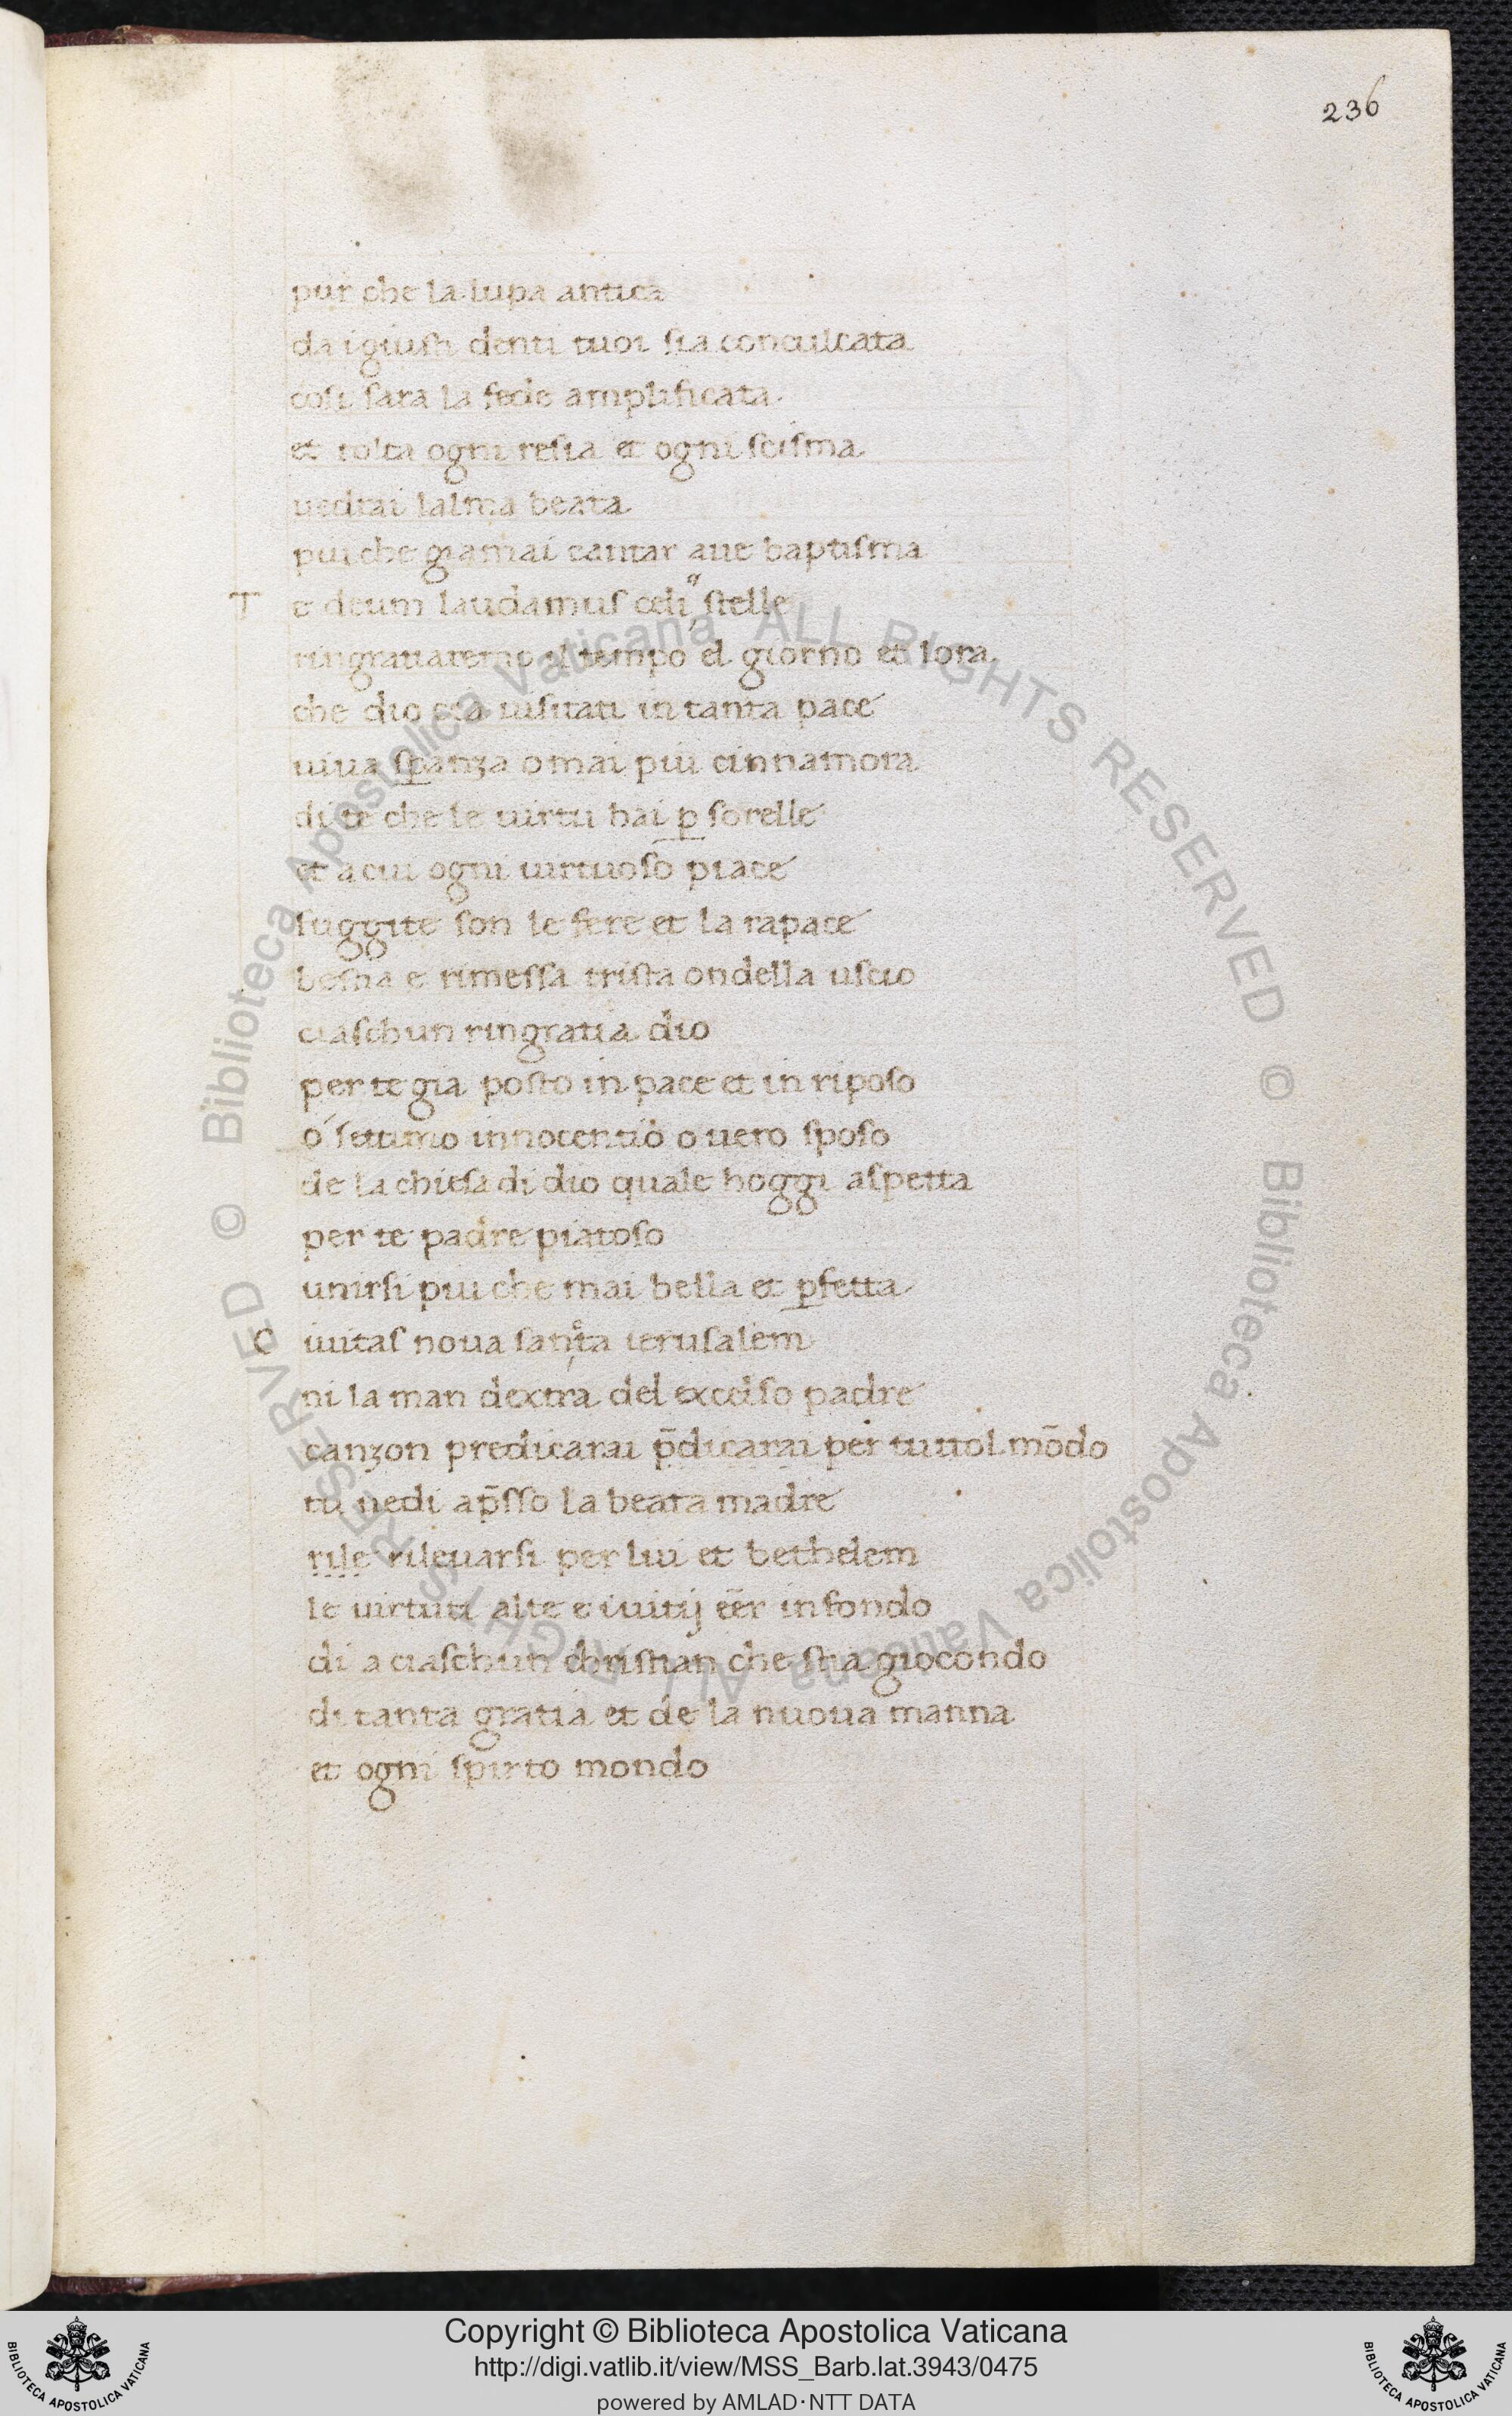 236
pur che la lupa antica
da i giusti denti tuoi sia conculcata
cosi sara la fede amplificata
et tolta ogni resia et ogni scisma
uedrai lalma beata
piu che giamai cantar aue baptisma
T e deum laudamus celi 'q stelle
ringratiaremo il tempo el giorno et lora
che dio uisitati in tanta pace
uiua spanza omai piu cinnamora
di te che le uirtu hai p sorelle
et a cui ogni uirtuoso piace
fuggite son le fere et la rapace
bestia e rimessa trista ondella uscio
ciaschun ringratia dio
per te gia posto in pace et in riposo
o settimo innocentio o uero sposo
de la chiesa di dio quale hoggi aspetta
per te padre piatoso
unirsi piu che mai bella et pfetta
C iuitas noua santa ierusalem
ni la man dextra del excelso padre
canzon predicarai p̄dicarai per tuttol mōdo
tu uedi ap̄sso la beata madre
rile rileuarsi per lui et bethelem
le uirtuti alte e i uitij eēr in fondo
di a ciaschun christian che stia giocondo
di tanta gratia et de la nuoua manna
et ogni spirto mondo
© Biblioteca Apostolica Vaticana ALL RIGHTS RESERVED © Biblioteca Apostolica Vaticana ALL RIGHTS RESERVED
Copyright © Biblioteca Apostolica Vaticana
http://digi.vatlib.it/view/MSS_Barb.lat.3943/0475
powered by AMLAD·NTT DATA
BIBLIOTECA APOSTOLICA VATICANA
BIBLIOTECA APOSTOLICA VATICANA